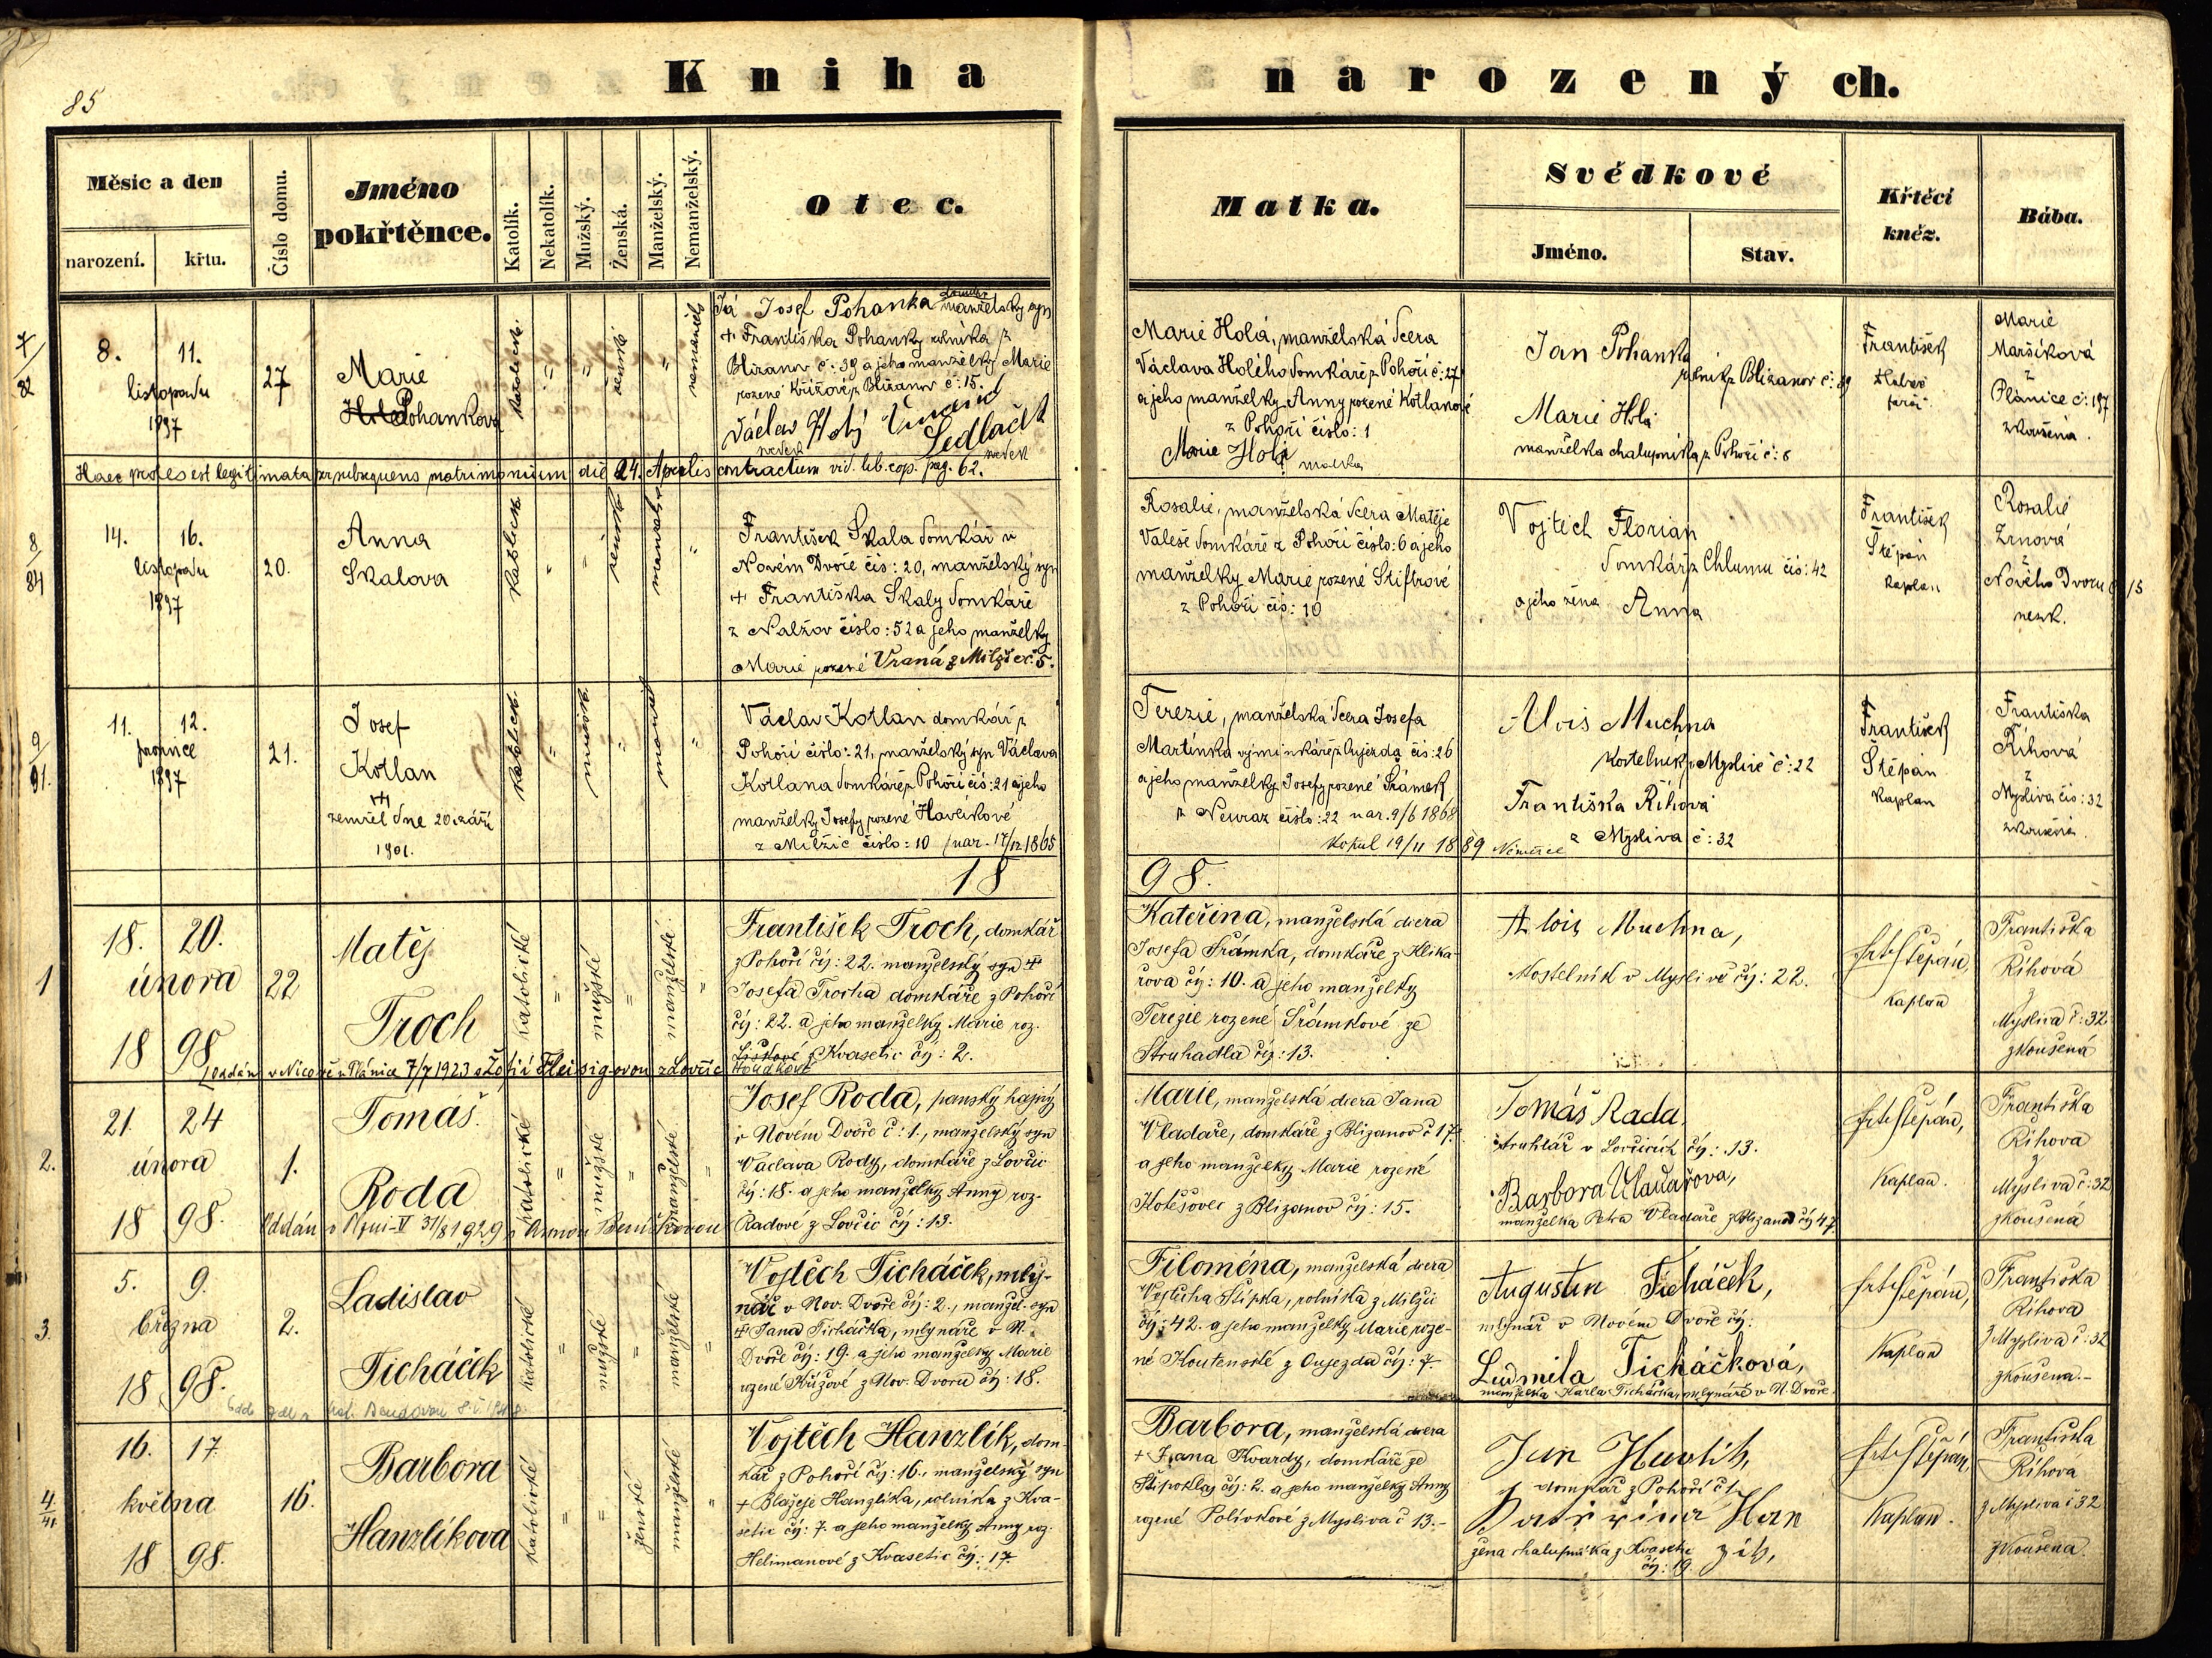 Kniha narozených.
85
Měsíc a den
narození.
křtu.
Číslo domu.
Jméno
pokřtěnce.
Katolík.
Nekatolík.
Mužský.
Ženská.
Manželský.
Nemanželský.
Otec.
Matka.
Svědkové
Jméno.
Stav.
Křtěcí
kněz.
Bába.
7/82
8. 11.
listopadu
1897
27
Marie
Pohankova
Já Josef Pohanka manželský syn
+ Františka Pohanky rolníka z
Blizanov č: 39 a jeho manželky Marie
rozené Křížové z Blizanov č: 15.
Václav Holý
svědek
Sedláček
svědek
Marie Holá, manželská dcera
Václava Holého domkáře z Pohoří č: 27
a jeho manželky Anny rozené Kotlanové
z Pohoří číslo: 1
Marie Holá matka
Jan Pohanka
rolník z Blizanov č: 39
Marie Holá
manželka chalupníka z Pohoří č: 8
František
farář
Marie
Maršíková
z
Plánice č: 197
zkoušená.
Haec proles est legitimata per subsequens matrimonium die 24. Aprilis contractum vid. lib. cop. pag. 62.
8/84
14. 16.
listopadu
1897
20.
Anna
Skalova
katolick.
=
=
ženské
manželsk.
=
František Skala domkář v
Novém Dvoře čís: 20, manželský syn
+ Františka Skaly domkáře
z Nalžov číslo: 52 a jeho manželky
Marie rozené Vraná z Milžic č. 5.
Rosalie, manželská dcera Matěje
Valeše domkáře z Pohoří číslo: 6 a jeho
manželky Marie rozené Štiftrové
z Pohoří čís: 10
Vojtěch Florian
domkář z Chlumu čís: 42
a jeho žena Anna
František
Štěpán
kaplan
Rosalie
Zrnová
z
Nového Dvoru č 15
nezk.
9/91.
11. 12.
prosince
1897
21.
Josef
Kotlan
+
zemřel dne 20. září
1901.
Václav Kotlan domkář z
Pohoří číslo: 21, manželský syn Václava
Kotlana domkáře z Pohoří čís: 21 a jeho
manželky Josefy rozené Havlíkové
z Milžic číslo: 10 /nar. 17/12 1865
Terezie, manželská dcera Josefa
Martínka výminkáře z Oujezda čís: 26
a jeho manželky Josefy rozené Šrámek
z Neuraz číslo: 22 nar. 9/6 1868
Kopul 19/11 1889
Alois Muchna
kostelník v Myslivě č: 22
Františka Říhová
z Mysliva č: 32
František
Štěpán
kaplan
Františka
Říhová
z
Mysliva čís: 32
zkoušená.
1898.
1
18. 20.
února
1898
22
Matěj
Troch
katolické
=
mužské
=
manželské
=
František Troch, domkář
z Pohoří čís: 22. manželský syn +
Josefa Trocha domkáře z Pohoří
čís: 22. a jeho manželky Marie roz.
z Kvasetic čís: 2.
Kateřina, manželská dcera
Josefa Šrámka, domkáře z Klika-
řova čís: 10. a jeho manželky
Terezie rozené Šrámkové ze
Struhadla čís: 13.
Alois Muchna,
kostelník v Myslivě čís: 22.
Frt. Štěpán,
kaplan
Františka
Říhová
z
Mysliva č: 32
zkoušená
Oddán v Nicově u Plánice 7/7 1923 s Žofií Fleisigovou z Lovčic
2.
21. 24
února
1898.
1.
Tomáš.
Roda
katolické
=
mužské
=
manželské
=
Josef Roda, panský hajný
v Novém Dvoře č: 1., manželský syn
Václava Rody, domkáře z Lovčic
čís: 18. a jeho manželky Anny roz.
Radové z Lovčic čís: 13.
Marie, manželská dcera Jana
Vladaře, domkáře z Blizanov č 17.
a jeho manželky Marie rozené
z Blizanov čís: 15.
Tomáš Rada,
truhlář v Lovčicích čís: 13.
Barbora Vladařova,
manželka Petra Vladaře z Blizanov čís 47.
Frt. Štěpán,
kaplan.
Františka
Říhova
z
Mysliva č: 32
zkoušená
3.
5. 9.
března
1898.
2.
Ladislav
Ticháček
katolické
=
mužské
=
manželské
=
Vojtěch Ticháček, mly-
nář v Nov. Dvoře čís: 2., manžel. syn
+ Jana Ticháčka, mlynáře v N.
Dvoře čís: 19. a jeho manželky Marie
rozené Křížové z Nov. Dvoru čís: 18.
Filoména, manželská dcera
Vojtěcha Slípka, rolníka z Milžic
čís: 42. a jeho manželky Marie roze-
né Koutenské z Oujezda čís: 7.
Augustin Ticháček,
mlynář v Novém Dvoře čís:
Ludmila Ticháčková,
manželka Karla Ticháčka, mlynáře v N. Dvoře.
Frt. Štěpán,
kaplan
Františka
Říhova
z Mysliva č: 32
zkoušena.-
4./41.
16. 17.
května
1898.
16.
Barbora
Hanzlíkova
katolické
=
=
ženské
manželské
=
Vojtěch Hanzlík, dom-
kář z Pohoří čís: 16., manželský syn
+ Blažeje Hanzlíka, rolníka z Kva-
setic čís: 7. a jeho manželky Anny roz.
Helimanové z Kvasetic čís: 17.
Barbora, manželská dcera
+ Jana Kvardy, domkáře ze
Štipoklas čís: 2. a jeho manželky Anny
rozené Polívkové z Mysliva č 13.-
Jan Havlík,
domkář z Pohoří č 1.
Kateřina Han
zík,
žena chalupníka z Kvasetic
čís: 19
Frt. Štěpán,
Kaplan.
Františka
Říhova
z Mysliva č 32
zkoušena.